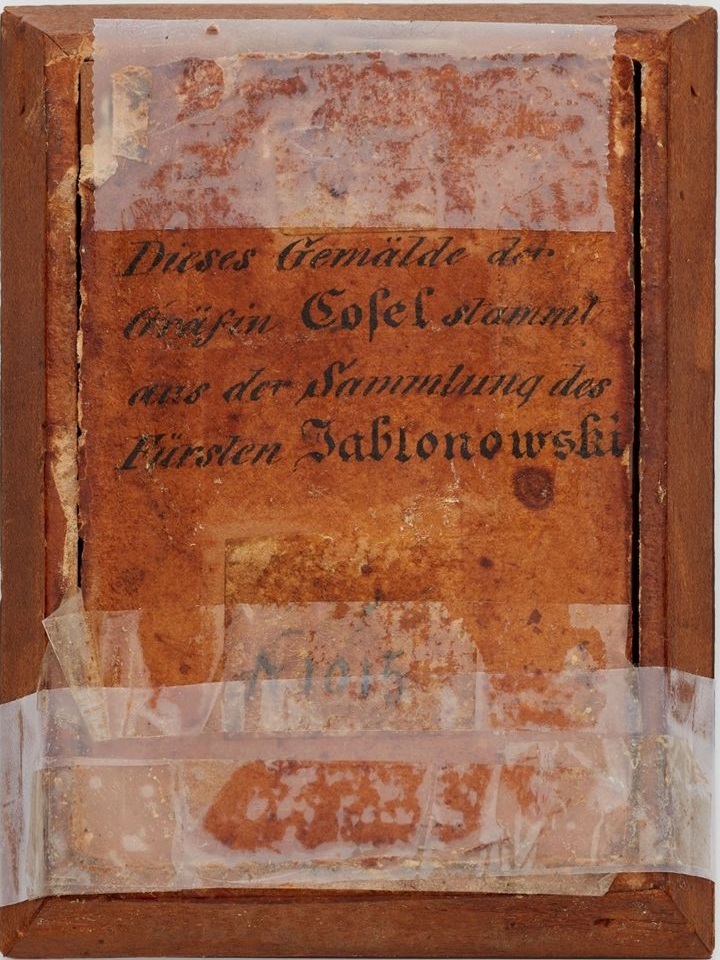 Dieses Gemälde der
Gräfin Coſel stammt
aus der Sammlung des
Fürsten Jablonowski
N 1015